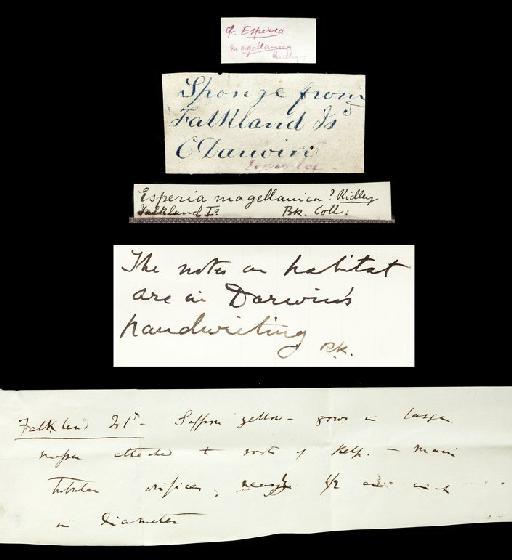 cf. Esperia
magellanica
Ridley
Sponge from
Falkland Isd
C Darwin
Esperia magellanica? Ridley
Falkland Is. Bk. Coll.
The notes on habitat
are in Darwin's
handwriting
Bk.
Falkland Isd - Saffron yellow - grows in large
masses attached to roots of Kelp. - Many
tubular orifices, nearly 1/2 an inch
in diameter